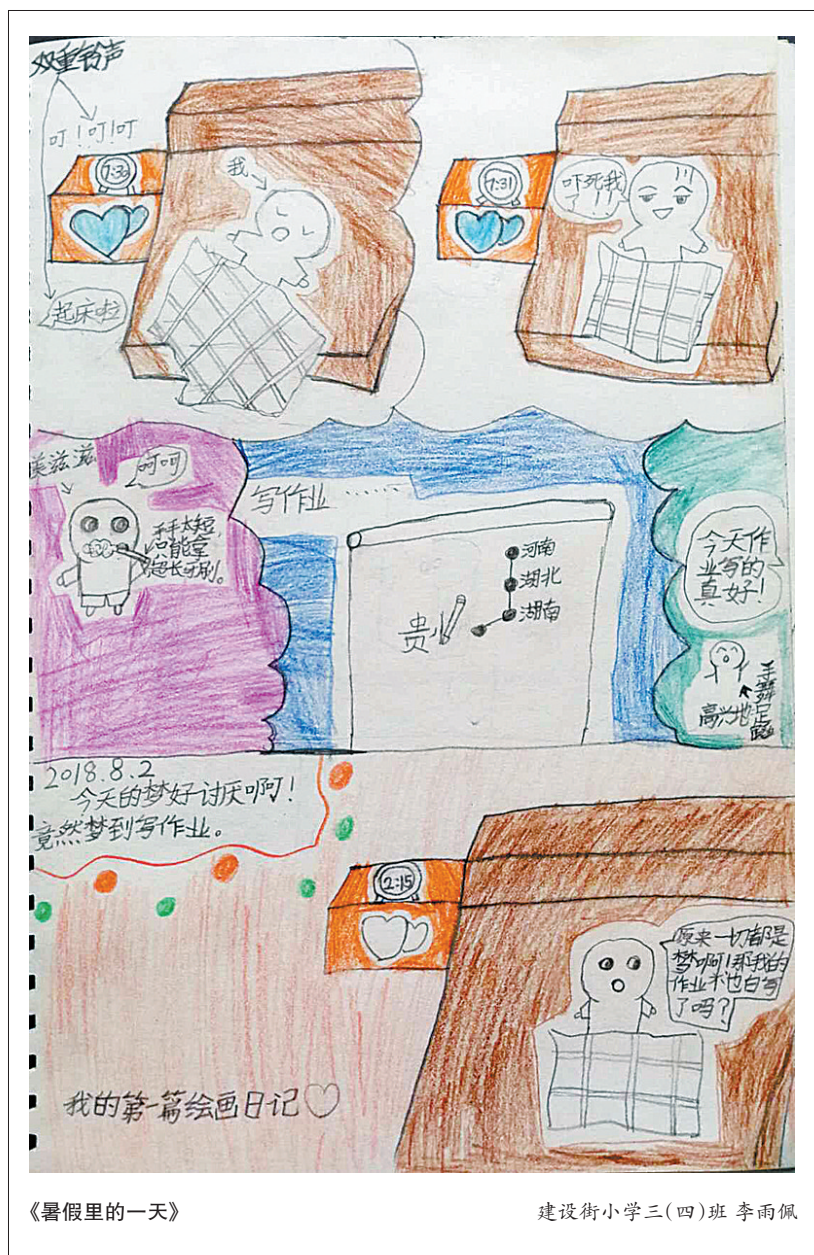 双重铃声
叮！叮！叮
7:30
我
起床啦
7:31
吓死我
了！！！
美滋滋
呵呵
手手太短，
只能拿
超长牙刷。
写作业……
河南
湖北
湖南
贵
今天作
业写的
真好！
高兴地
手舞足蹈
2018.8.2
今天的梦好讨厌啊！
竟然梦到写作业。
2:15
原来一切都是
梦啊！那我的
作业不也白写
了吗？
我的第一篇绘画日记♡
《暑假里的一天》
建设街小学三（四）班 李雨佩